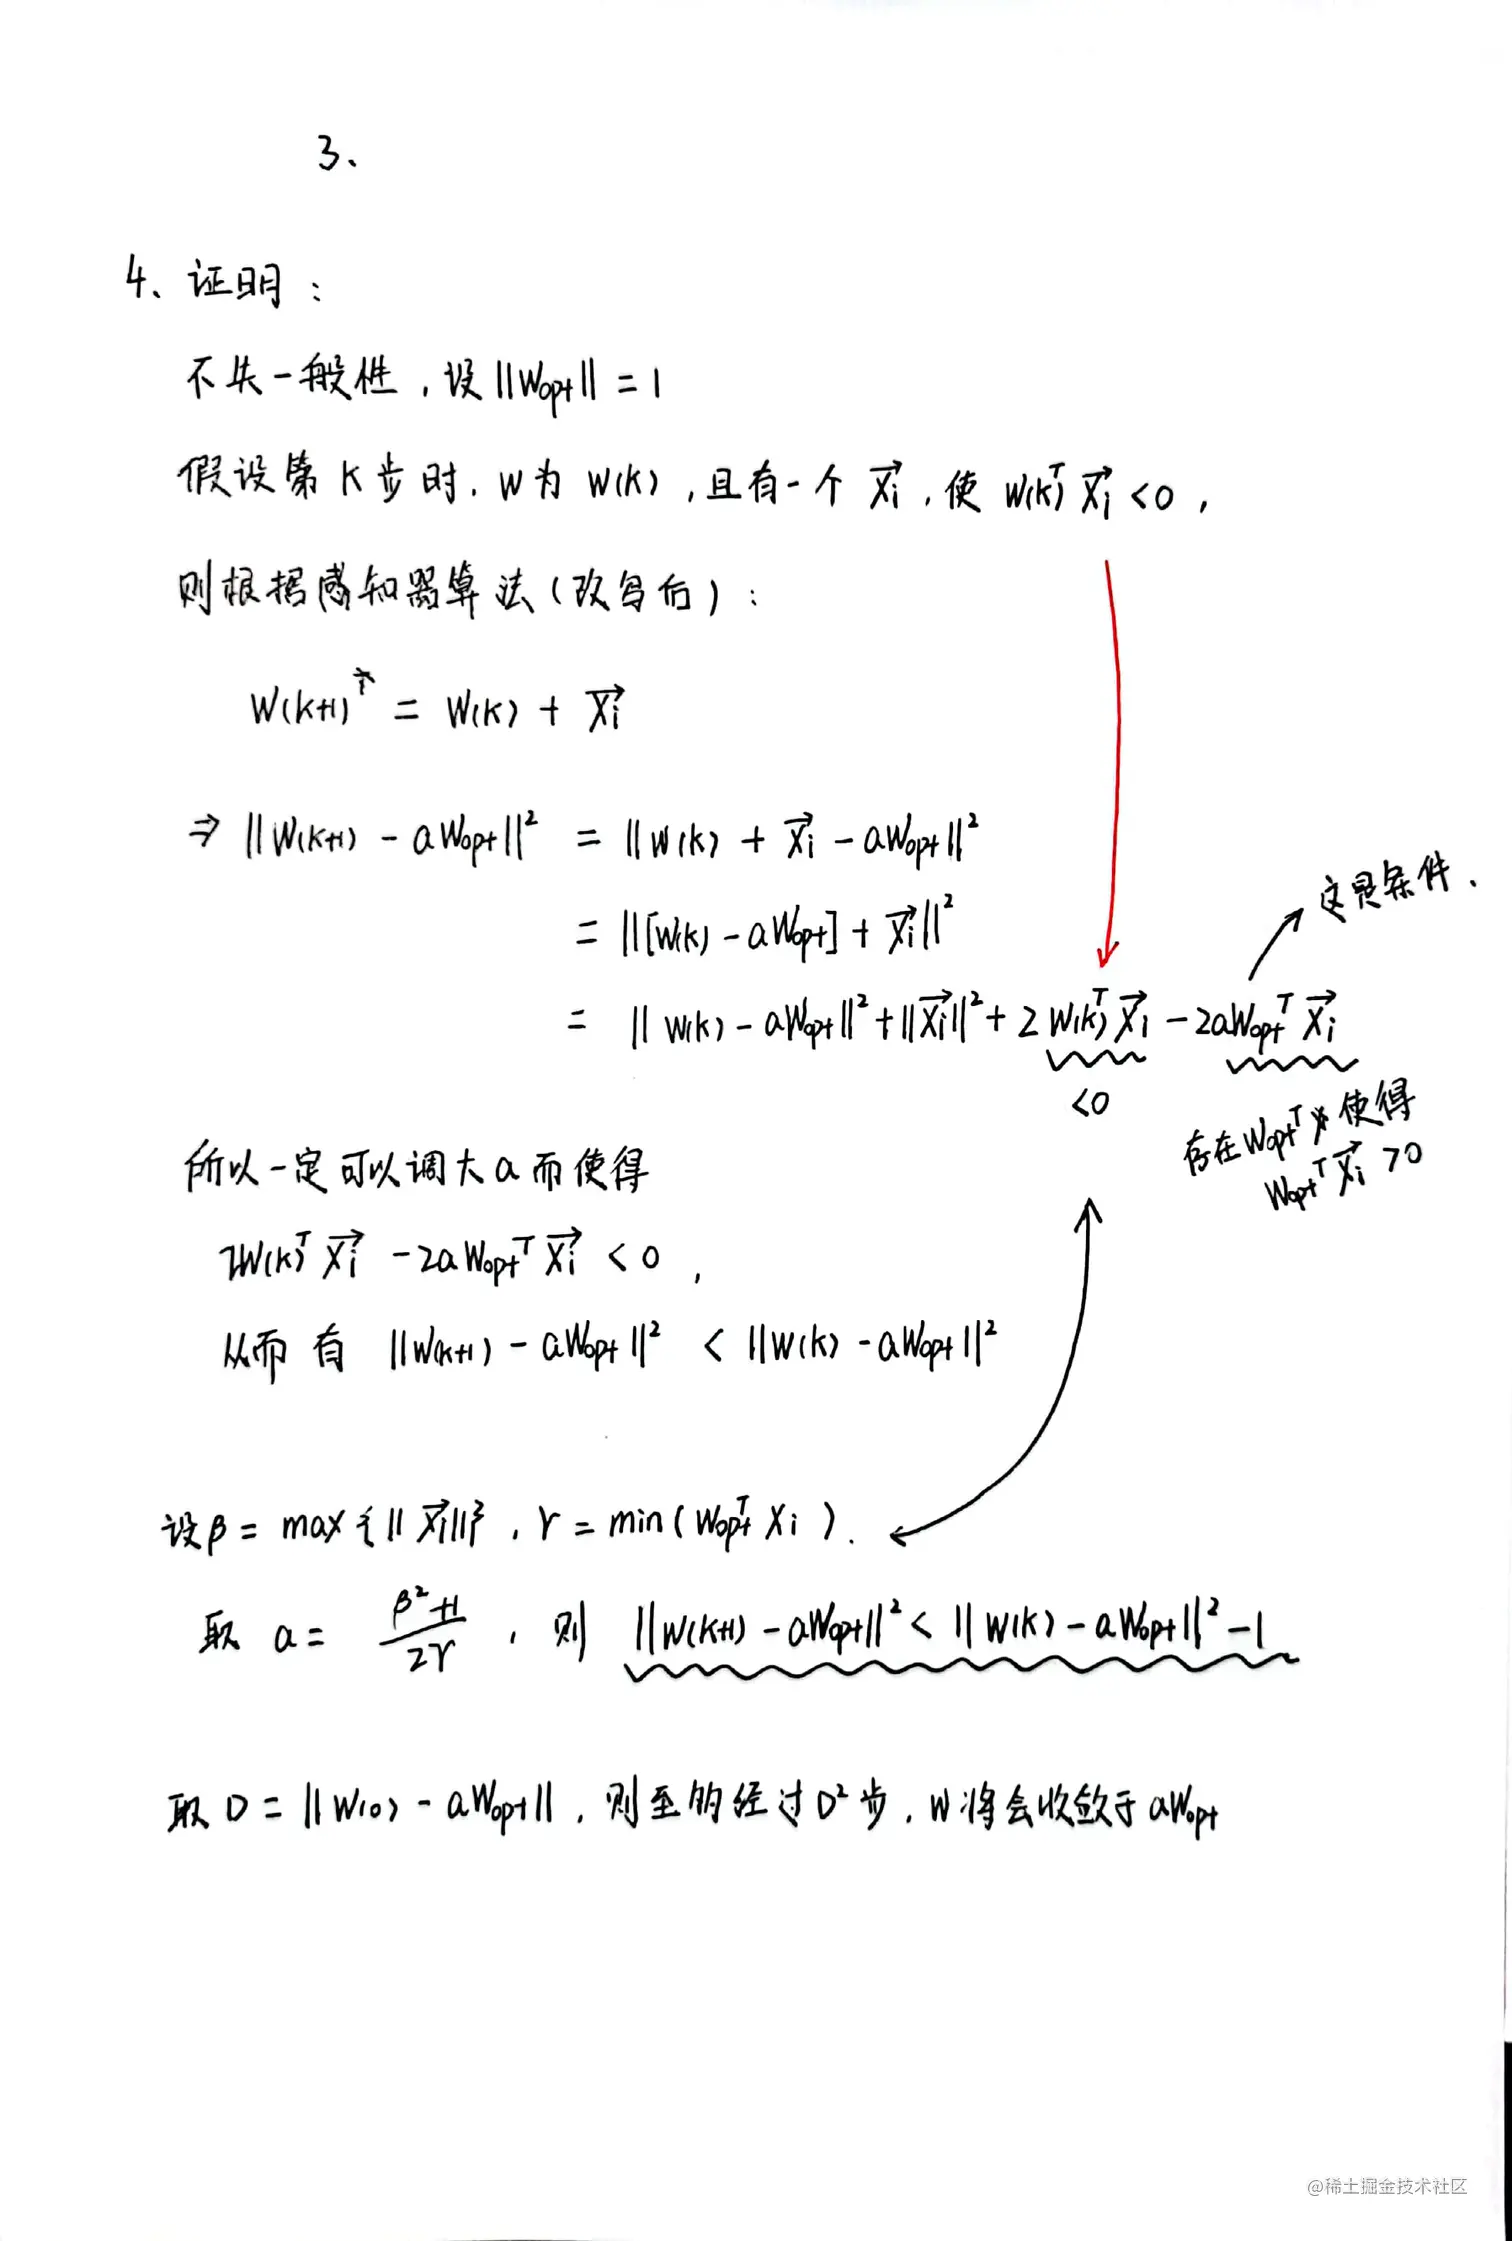 3、
4、证明：
不失一般性，设 ||Wopt|| = 1
假设第K步时，W为 W(k)，且有一个 X⃗i，使 W(k)ᵀX⃗i < 0，
则根据感知器算法（改写后）：
W(k+1) = W(k) + X⃗i
⇒ ||W(k+1) - aWopt||² = ||W(k) + X⃗i - aWopt||²
= ||[W(k) - aWopt] + X⃗i||²
这是条件.
= ||W(k) - aWopt||² + ||X⃗i||² + 2W(k)ᵀX⃗i - 2aWoptᵀX⃗i
<0
存在Woptᵀ 使得
WoptᵀX⃗i >0
所以一定可以调大a而使得
2W(k)ᵀX⃗i - 2aWoptᵀX⃗i < 0，
从而有 ||W(k+1) - aWopt||² < ||W(k) - aWopt||²
设β = max{||X⃗i||}，γ = min(WoptᵀXi).
取 a = (β²+1)/2γ，则 ||W(k+1) - aWopt||² < ||W(k) - aWopt||² - 1
取 D = ||W(0) - aWopt||，则至的经过D²步，W将会收敛于aWopt
@稀土掘金技术社区